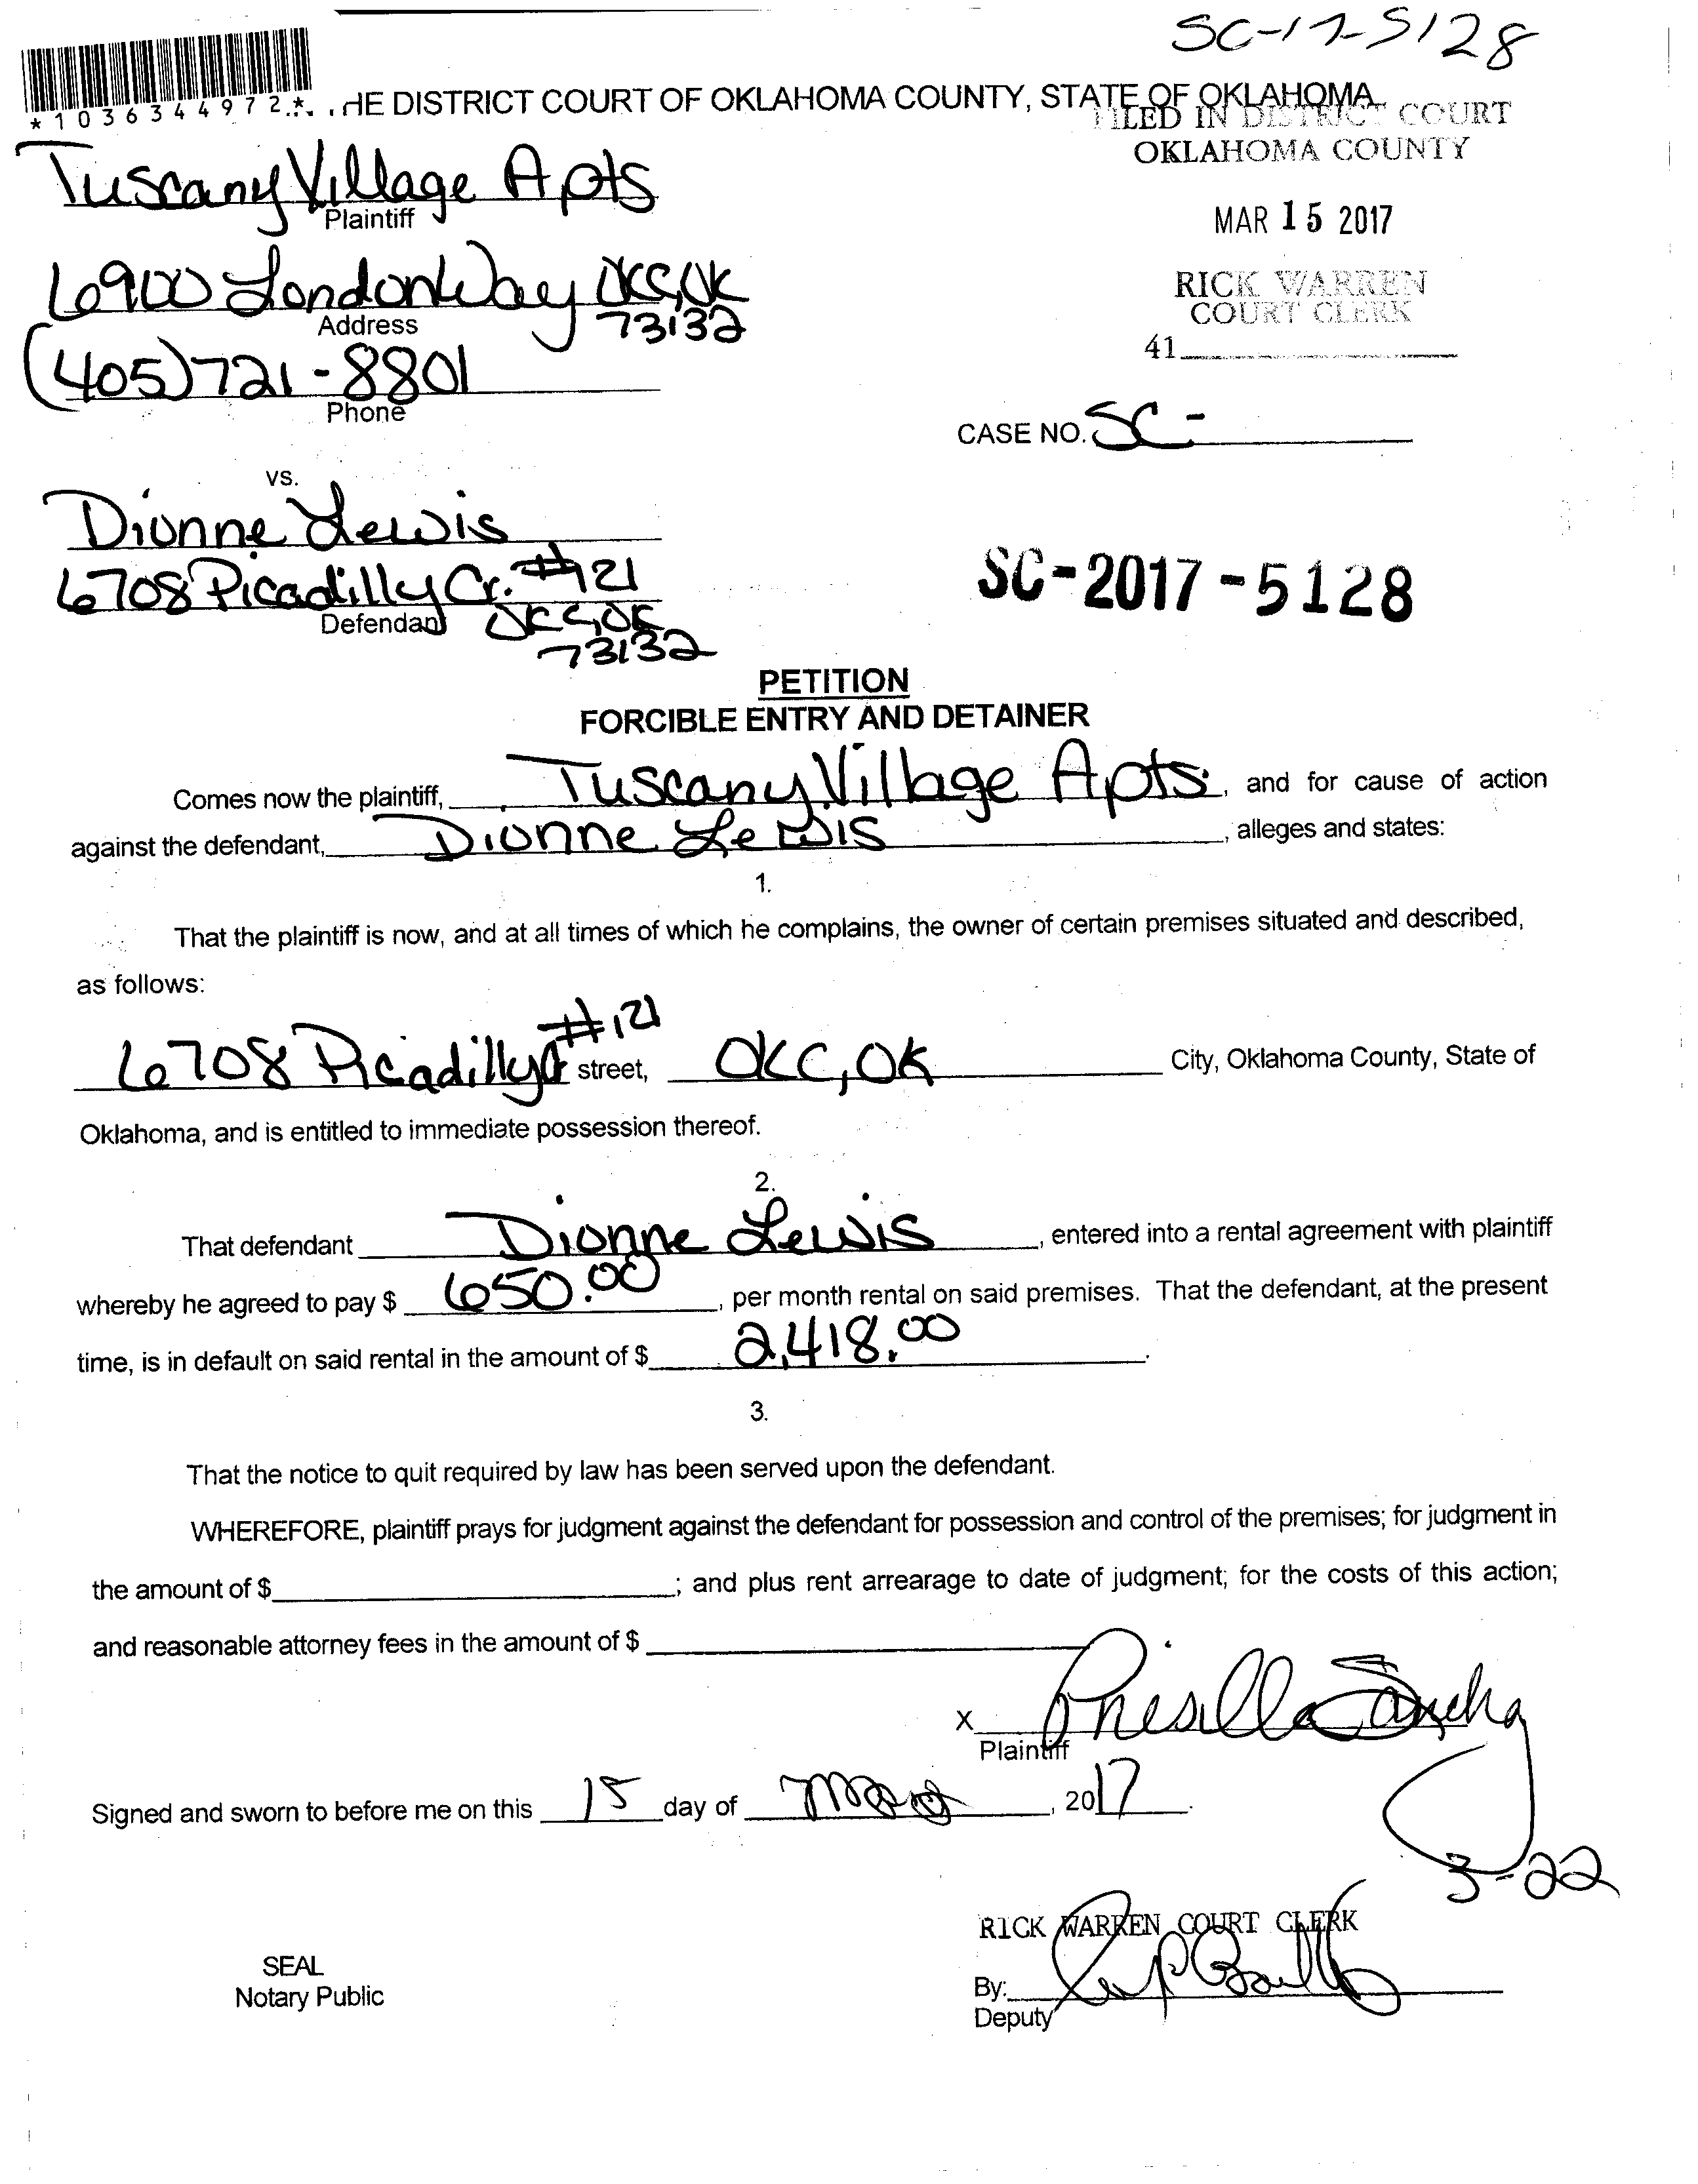 SC-17-5128
*1036344972*
HE DISTRICT COURT OF OKLAHOMA COUNTY, STATE OF OKLAHOMA
FILED IN DISTRICT COURT
OKLAHOMA COUNTY
Tuscany Village Apts
Plaintiff
MAR 15 2017
6900 London Way OKC, OK
73132
Address
RICK WARREN
COURT CLERK
41
(405)721-8801
Phone
CASE NO. SC-
vs.
Dionne Lewis
6708 Picadilly Cr. #121
Defendant OKC, OK
73132
SC-2017-5128
PETITION
FORCIBLE ENTRY AND DETAINER
Comes now the plaintiff, Tuscany Village Apts., and for cause of action
against the defendant, Dionne Lewis, alleges and states:
1.
That the plaintiff is now, and at all times of which he complains, the owner of certain premises situated and described,
as follows:
6708 Picadilly Cr #121 street, OKC, OK City, Oklahoma County, State of
Oklahoma, and is entitled to immediate possession thereof.
2.
That defendant Dionne Lewis, entered into a rental agreement with plaintiff
whereby he agreed to pay $ 650.00, per month rental on said premises. That the defendant, at the present
time, is in default on said rental in the amount of $ 2,418.00.
3.
That the notice to quit required by law has been served upon the defendant.
WHEREFORE, plaintiff prays for judgment against the defendant for possession and control of the premises; for judgment in
the amount of $ ; and plus rent arrearage to date of judgment; for the costs of this action;
and reasonable attorney fees in the amount of $
X
Plaintiff
Signed and sworn to before me on this 15 day of Mar, 2017.
3-22
RICK WARREN COURT CLERK
SEAL
Notary Public
By:
Deputy